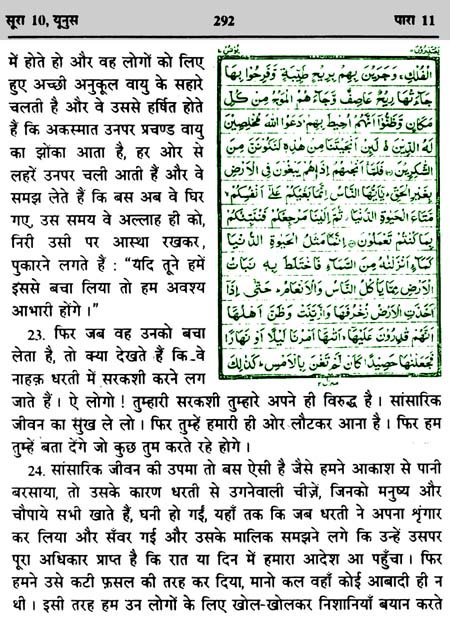 सूरा 10, यूनुस 292 पारा 11
में होते हो और वह लोगों को लिए
हुए अच्छी अनुकूल वायु के सहारे
चलती है और वे उससे हर्षित होते
हैं कि अकस्मात उनपर प्रचण्ड वायु
का झोंका आता है, हर ओर से
लहरें उनपर चली आती हैं और वे
समझ लेते हैं कि बस अब वे घिर
गए, उस समय वे अल्लाह ही को,
निरी उसी पर आस्था रखकर,
पुकारने लगते हैं : “यदि तूने हमें
इससे बचा लिया तो हम अवश्य
आभारी होंगे ।”
23. फिर जब वह उनको बचा
लेता है, तो क्या देखते हैं कि वे
नाहक़ धरती में सरकशी करने लग
जाते हैं । ऐ लोगो ! तुम्हारी सरकशी तुम्हारे अपने ही विरुद्ध है । सांसारिक
जीवन का सुख ले लो । फिर तुम्हें हमारी ही ओर लौटकर आना है । फिर हम
तुम्हें बता देंगे जो कुछ तुम करते रहे होगे ।
24. सांसारिक जीवन की उपमा तो बस ऐसी है जैसे हमने आकाश से पानी
बरसाया, तो उसके कारण धरती से उगनेवाली चीज़ें, जिनको मनुष्य और
चौपाये सभी खाते हैं, घनी हो गईं, यहाँ तक कि जब धरती ने अपना शृंगार
कर लिया और सँवर गई और उसके मालिक समझने लगे कि उन्हें उसपर
पूरा अधिकार प्राप्त है कि रात या दिन में हमारा आदेश आ पहुँचा । फिर
हमने उसे कटी फ़सल की तरह कर दिया, मानो कल वहाँ कोई आबादी ही न
थी । इसी तरह हम उन लोगों के लिए खोल-खोलकर निशानियाँ बयान करते
يعتذرون يونس
الْفُلْكِ وَجَرَيْنَ بِهِمْ بِرِيْحٍ طَيِّبَةٍ وَّفَرِحُوْا بِهَا
جَآءَتْهَا رِيْحٌ عَاصِفٌ وَّجَآءَهُمُ الْمَوْجُ مِنْ كُلِّ
مَكَانٍ وَّظَنُّوْٓا اَنَّهُمْ اُحِيْطَ بِهِمْ دَعَوُا اللّٰهَ مُخْلِصِيْنَ
لَهُ الدِّيْنَ لَئِنْ اَنْجَيْتَنَا مِنْ هٰذِهٖ لَنَكُوْنَنَّ مِنَ
الشّٰكِرِيْنَ فَلَمَّآ اَنْجٰهُمْ اِذَا هُمْ يَبْغُوْنَ فِى الْاَرْضِ
بِغَيْرِ الْحَقِّ يٰٓاَيُّهَا النَّاسُ اِنَّمَا بَغْيُكُمْ عَلٰٓى اَنْفُسِكُمْ
مَّتَاعَ الْحَيٰوةِ الدُّنْيَا ثُمَّ اِلَيْنَا مَرْجِعُكُمْ فَنُنَبِّئُكُمْ
بِمَا كُنْتُمْ تَعْمَلُوْنَ اِنَّمَا مَثَلُ الْحَيٰوةِ الدُّنْيَا
كَمَآءٍ اَنْزَلْنٰهُ مِنَ السَّمَآءِ فَاخْتَلَطَ بِهٖ نَبَاتُ
الْاَرْضِ مِمَّا يَاْكُلُ النَّاسُ وَالْاَنْعَامُ حَتّٰٓى اِذَآ
اَخَذَتِ الْاَرْضُ زُخْرُفَهَا وَازَّيَّنَتْ وَظَنَّ اَهْلُهَآ
اَنَّهُمْ قٰدِرُوْنَ عَلَيْهَآ اَتٰىهَآ اَمْرُنَا لَيْلًا اَوْ نَهَارًا
فَجَعَلْنٰهَا حَصِيْدًا كَاَنْ لَّمْ تَغْنَ بِالْاَمْسِ كَذٰلِكَ